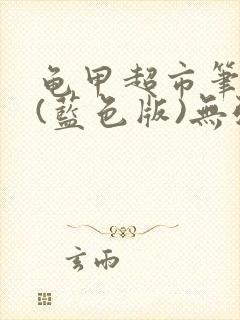 龟甲超市筆
(藍色版)無
玄雨